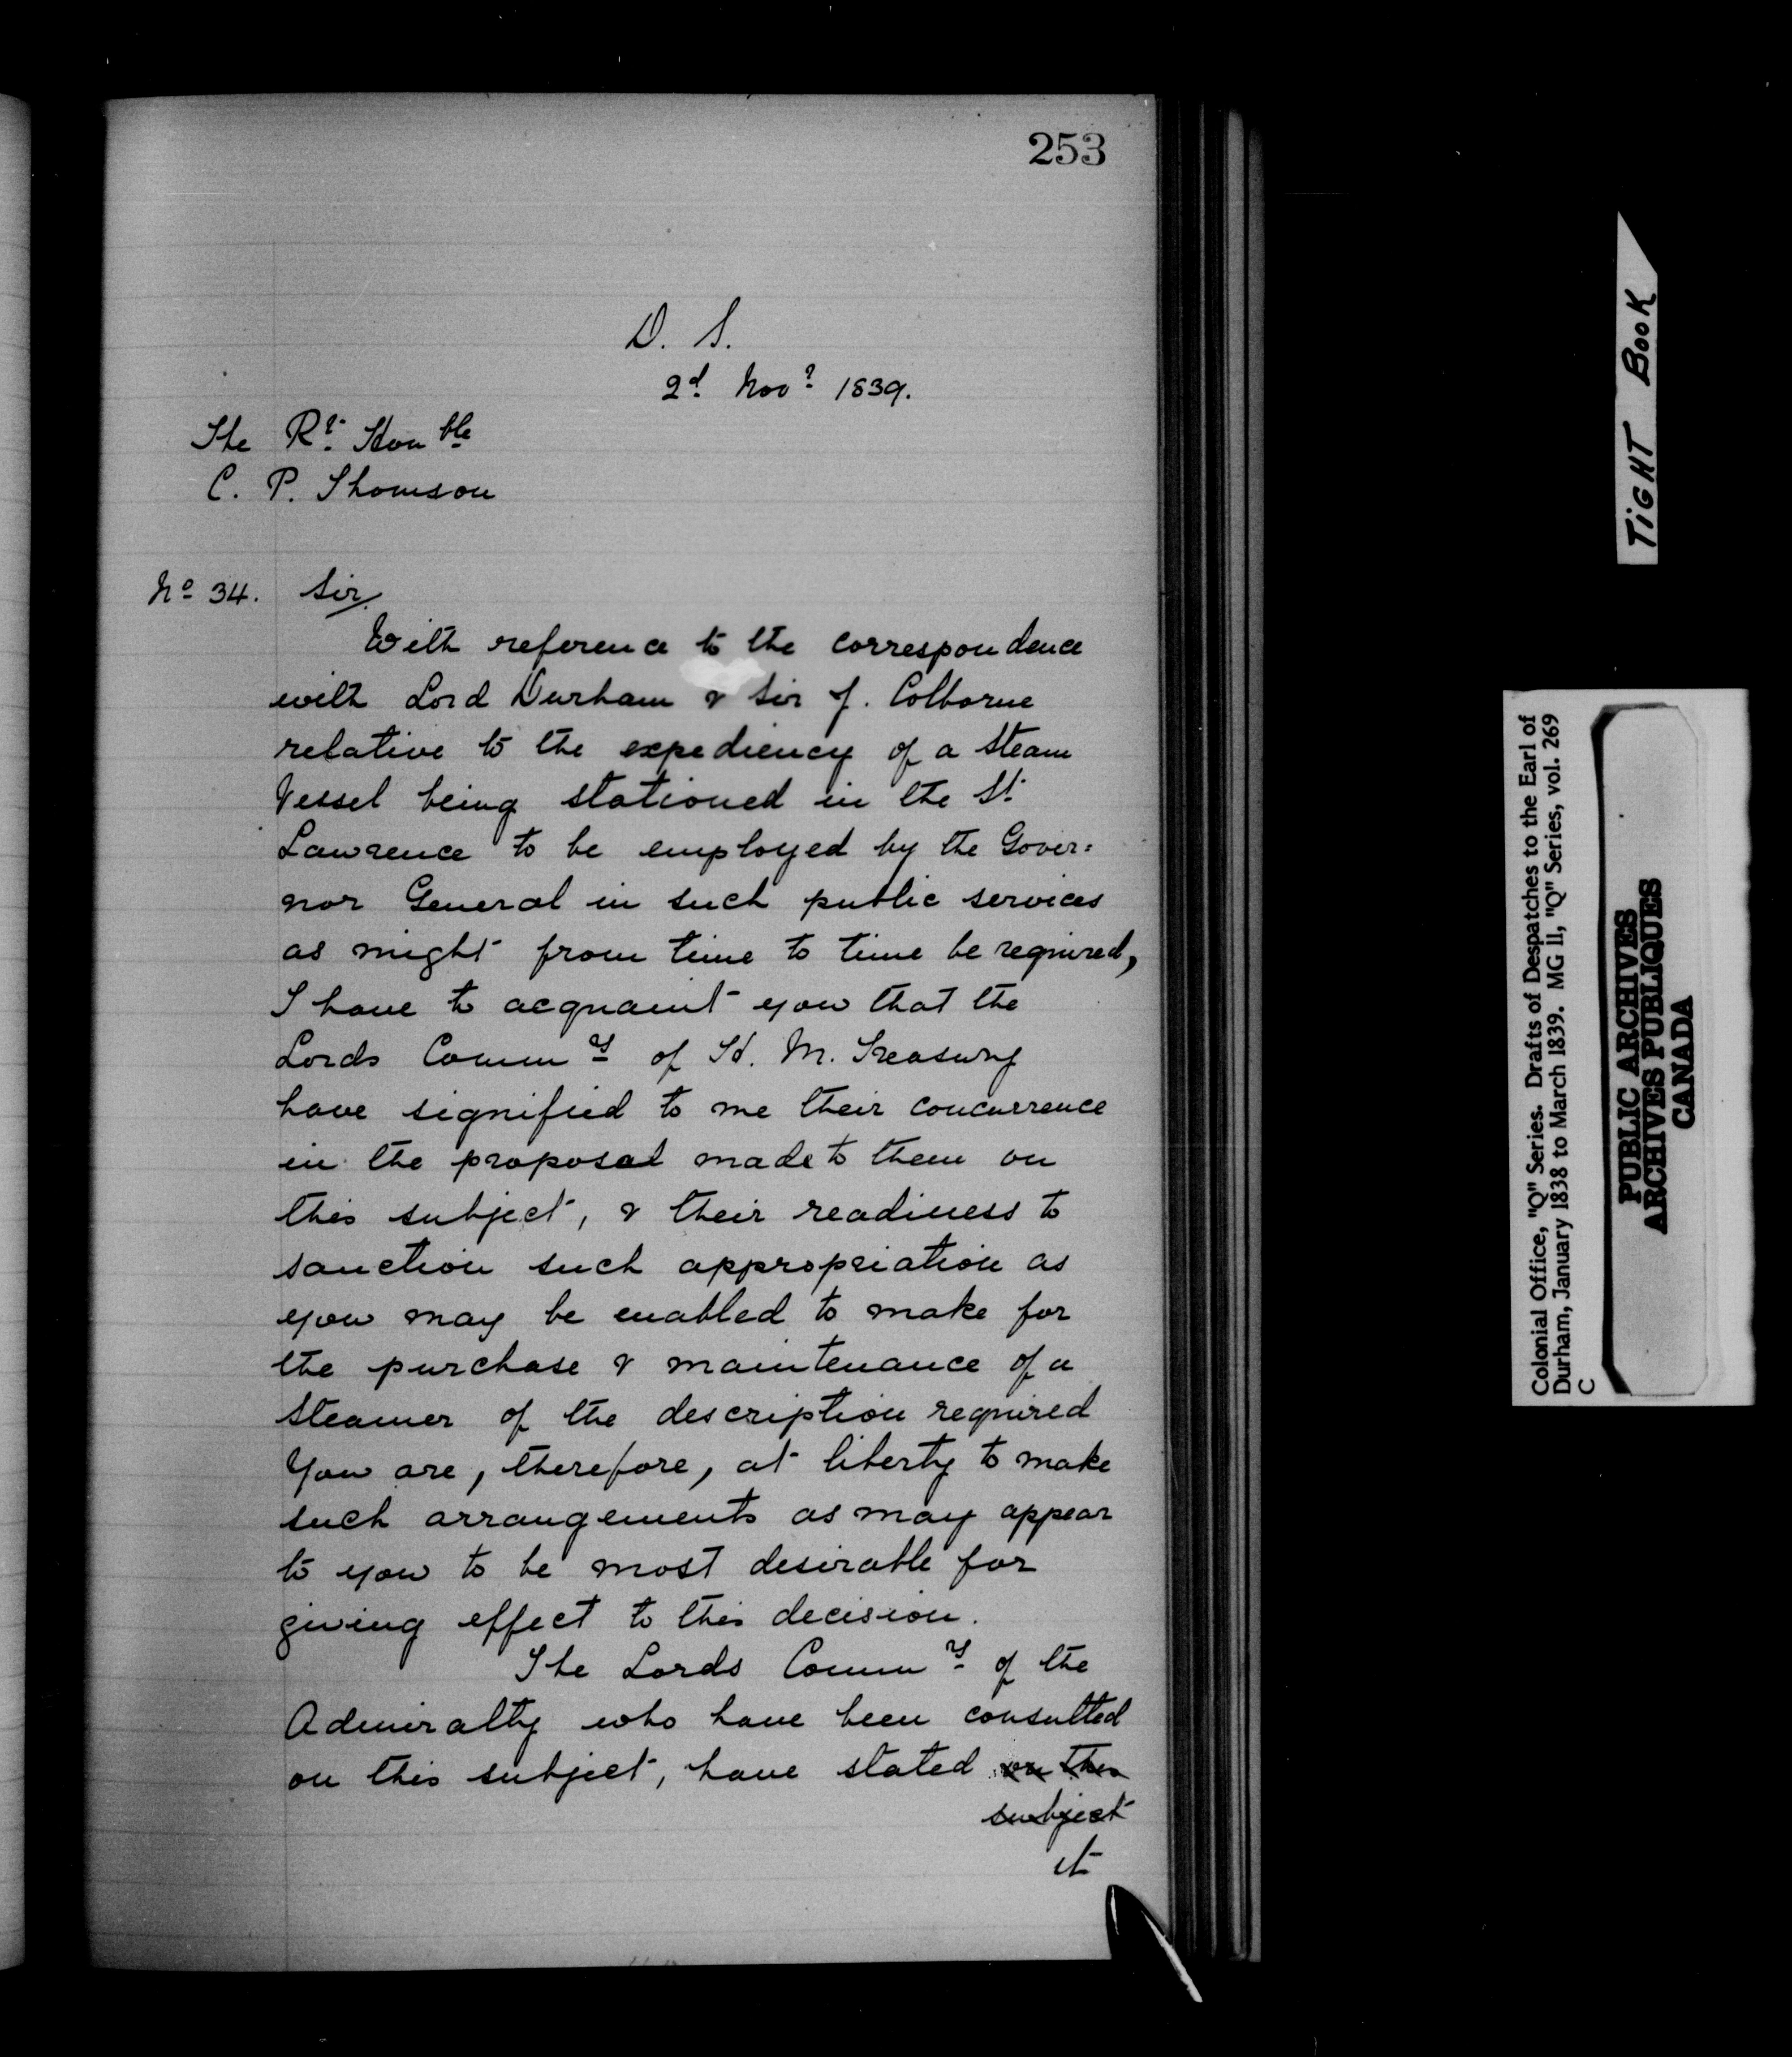 253
D. S.
2d Novr 1839.
The Rt Honble
C. P. Thomson
No 34. Sir,
With reference to the correspondence
with Lord Durham & Sir J. Colborne
relative to the expediency of a Steam
Vessel being stationed in the St
Lawrence to be employed by the Gover=
nor General in such public services
as might from time to time be required,
I have to acquaint you that the
Lords Commrs of H. M. Treasury
have signified to me their concurrence
in the proposal made to them on
this subject, & their readiness to
sanction such appropriation as
you may be enabled to make for
the purchase & maintenance of a
Steamer of the description required
You are, therefore, at liberty to make
such arrangements as may appear
to you to be most desirable for
giving effect to this decision.
The Lords Commrs of the
Admiralty who have been consulted
on this subject, have stated on this
subject
it
TIGHT BOOK
Colonial Office, "Q" Series. Drafts of Despatches to the Earl of
Durham, January 1838 to March 1839. MG 11, "Q" Series, vol. 269
C
PUBLIC ARCHIVES
ARCHIVES PUBLIQUES
CANADA